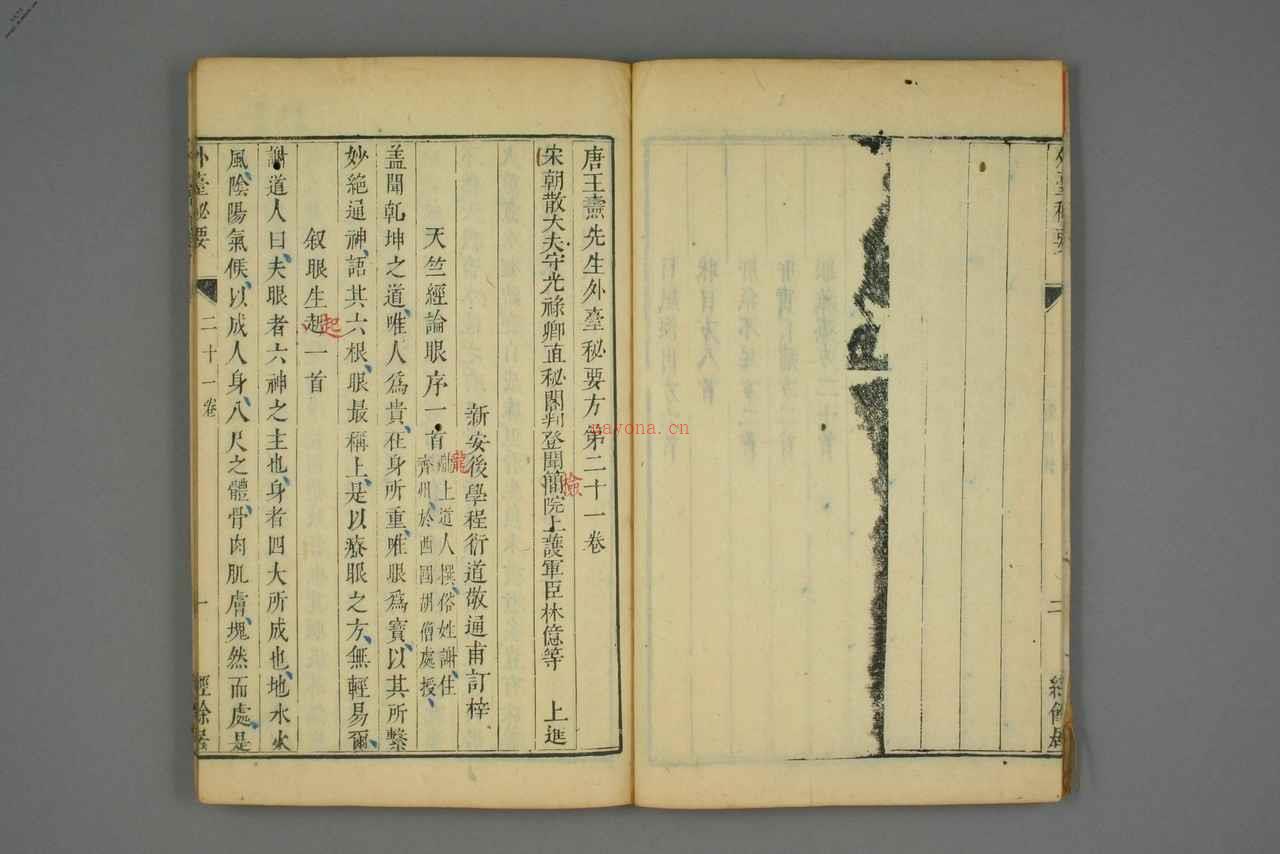 唐王燾先生外臺秘要方第二十一卷
宋朝散大夫守光祿卿直秘閣判登聞簡院上護軍臣林億等 上進
檢
新安後學程衍道敬通甫訂梓
天竺經論眼序一首
隴上道人撰俗姓謝住
齊州於西國胡僧處授
龍
蓋聞乾坤之道唯人爲貴在身所重唯眼爲寶以其所繫
妙絕通神語其六根眼最稱上是以療眼之方無輕易爾
叙眼生起一首
起
謝道人曰夫眼者六神之主也身者四大所成也地水火
風陰陽氣候以成人身八尺之體骨肉肌膚塊然而處是
外臺秘要
二十一卷
一
經餘居
nayona.cn